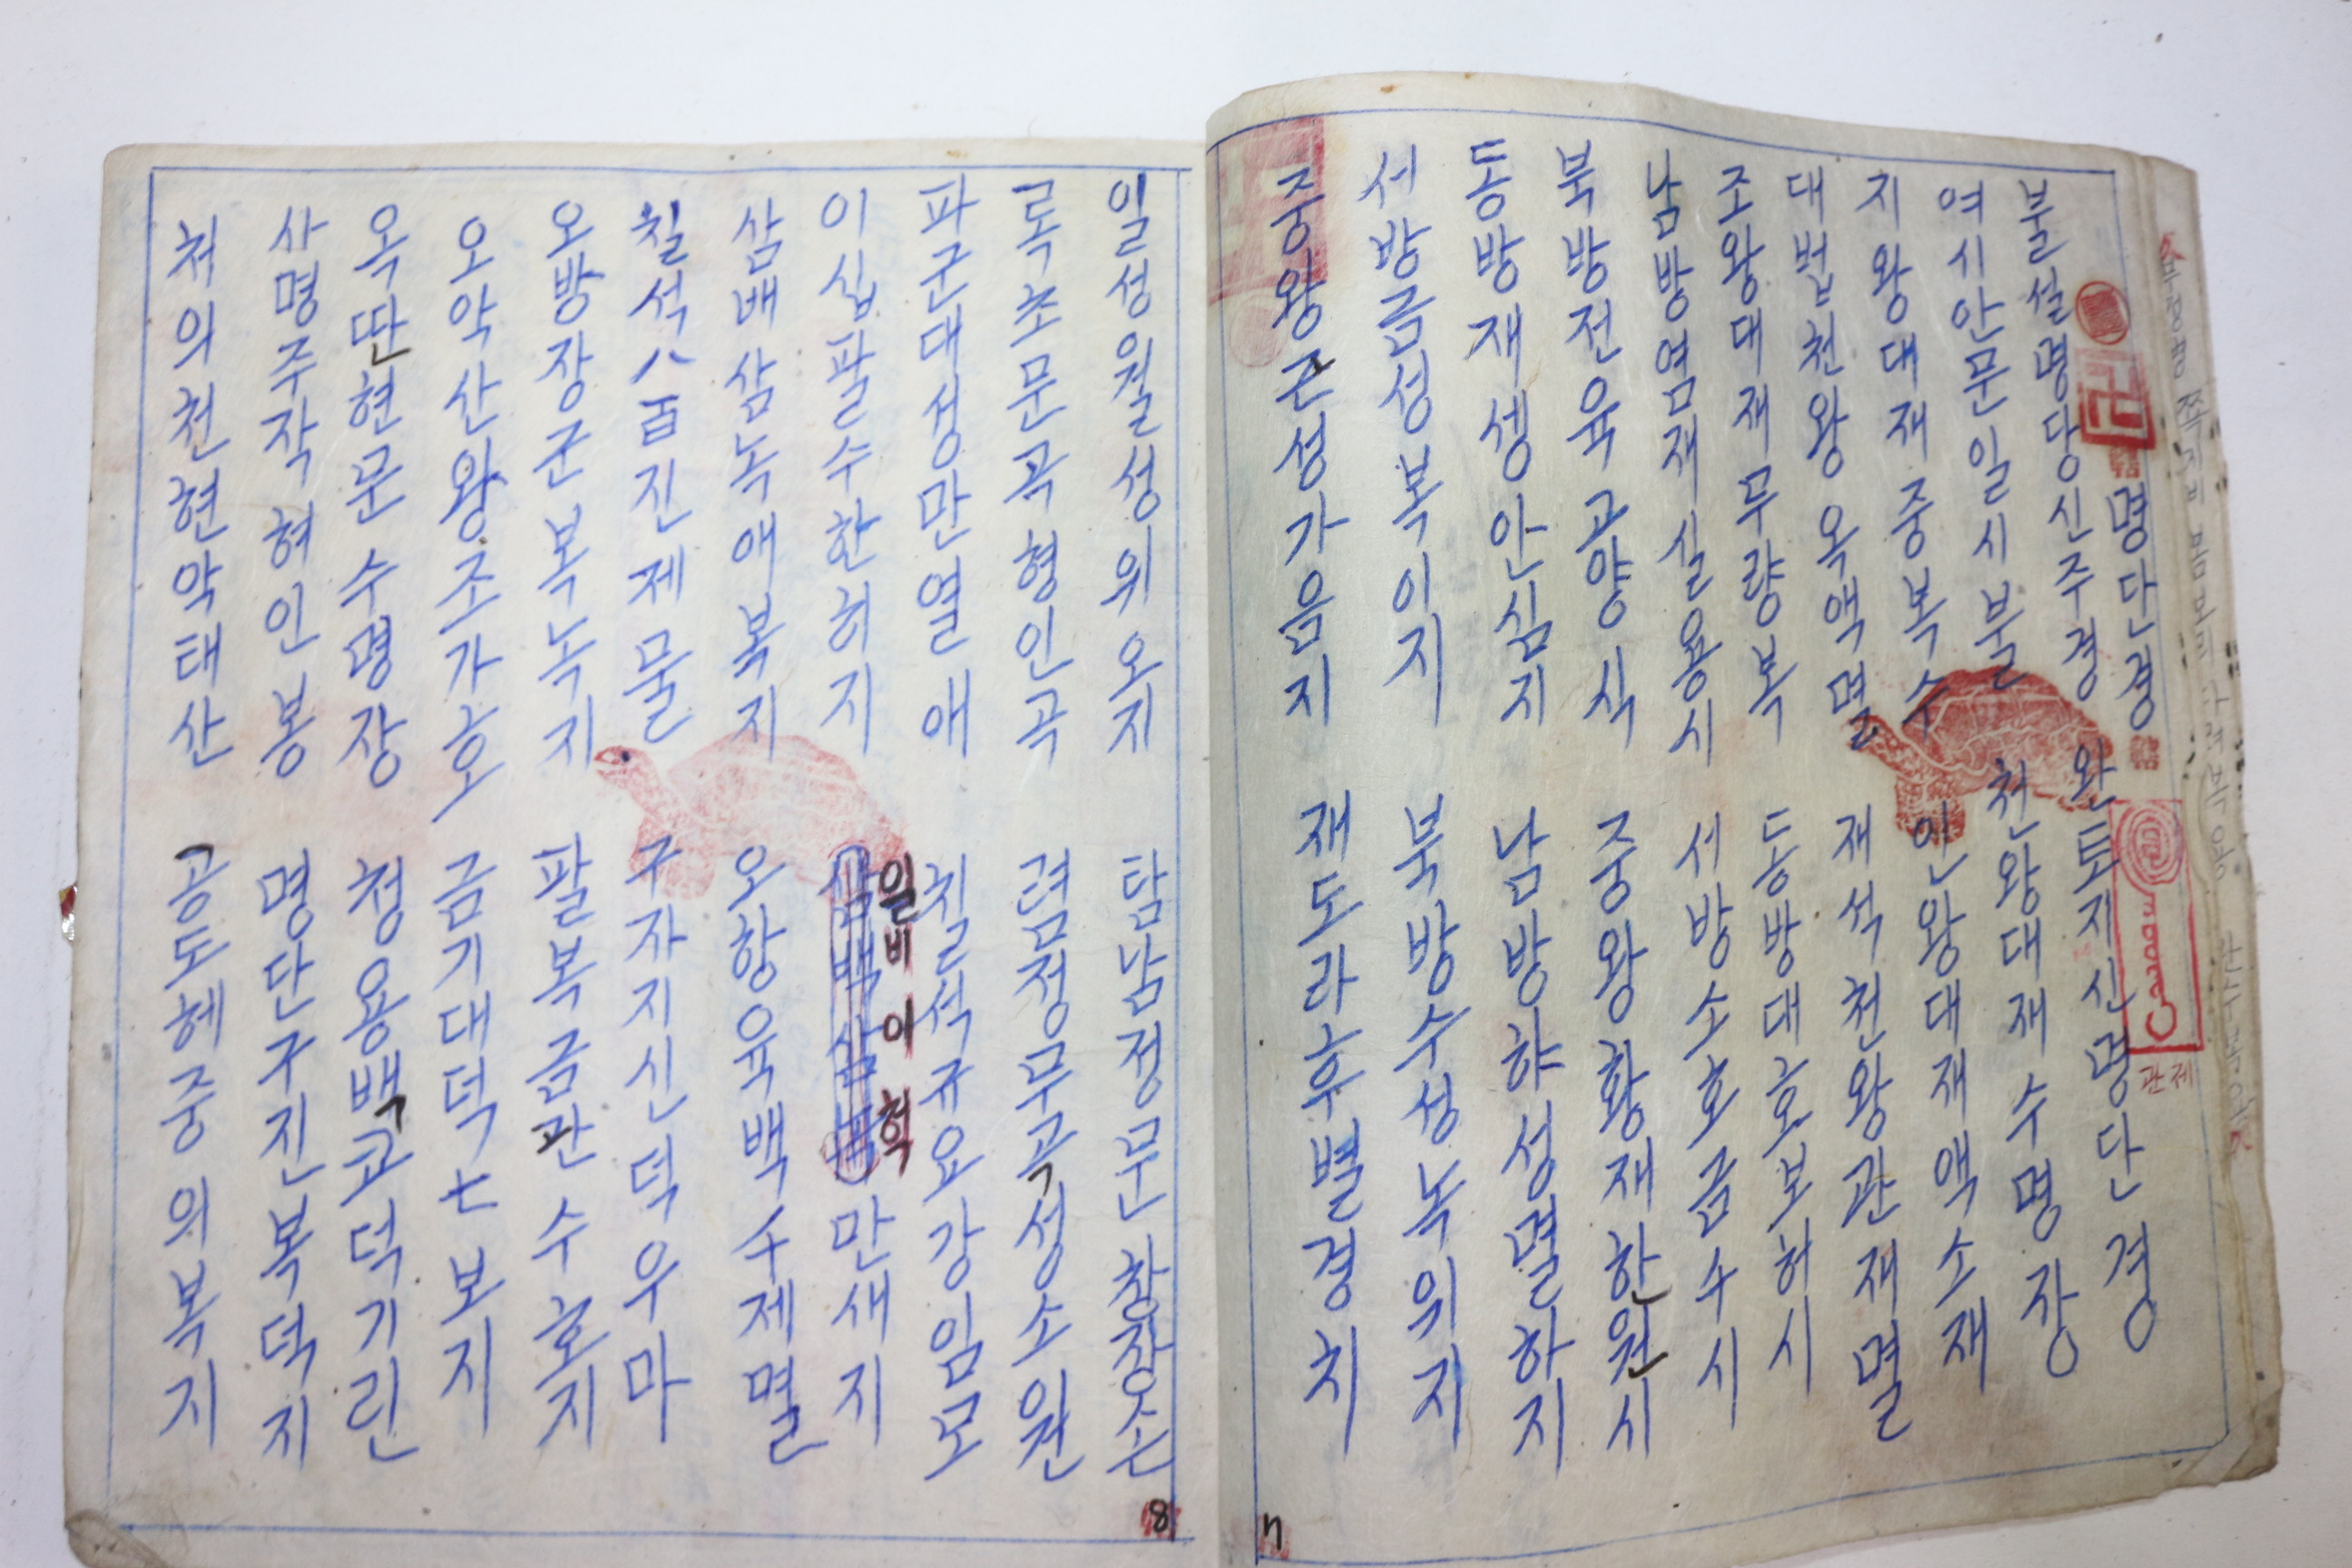 명단경 완토지신명단경
불설명당신주경 천왕대재수명장
여시안문일시불 인왕대재액소재
지왕대재중복수 재석천왕관재멸
대범천왕옥액멸 동방대호보허시
조왕대재무량복 서방소호금수시
남방염재실용시 중왕황재한원시
북방전육고양식 남방햐성멸하지
동방재셍안심지 북방수성녹위지
서방금성복이지 재도라후벌경치
중왕근성가음지
관제
7
일성월성위오지 탐남정문창장손
록초문곡형인곡 렴정무곡성소원
파군대성만열애 칠석규요강임모
이십팔수한허지 일비이혁 만새지
삼배삼녹애복지 오항육백수제멸
칠석八십진제물 구자지신덕우마
오방장군복녹지 팔복금관수호지
오악산왕조가호 금기대덕七보지
옥딴현문수명장 청용백교덕기린
사명주작혀인봉 명단구진복덕지
처의천현악태산 공도혜중의복지
8